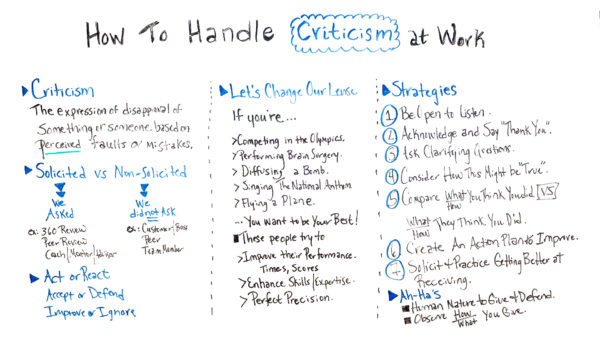 How To Handle Criticism at Work
Criticism
The expression of disapproval of
Something or someone based on
perceived faults or mistakes.
Solicited vs Non-Solicited
We
Asked
ex: 360 Review
Peer Review
Coach/Mentor/Advisor
We
did not Ask
ex: Customer/Boss
Peer
Team Member
Act or React
Accept or Defend
Improve or Ignore
Let's Change Our Lense
If you're...
>Competing in the Olympics.
>Performing Brain Surgery.
>Diffusing a Bomb.
>Singing The National Anthem
>Flying a Plane.
...You want to be Your Best!
These people try to
>Improve their Performance.
Times, Scores
>Enhance Skills/Expertise.
>Perfect Precision.
Strategies
1 Be Open to Listen.
2 Acknowledge and Say "Thank You".
3 Ask Clarifying Questions.
4 Consider How This Might be "True".
5 Compare What You Think You Did VS
How
What They Think You Did.
How
6 Create An Action Plan to Improve.
7 Solicit & Practice Getting Better at
Receiving.
Ah-Ha's
Human Nature to Give & Defend.
Observe How You Give.
What